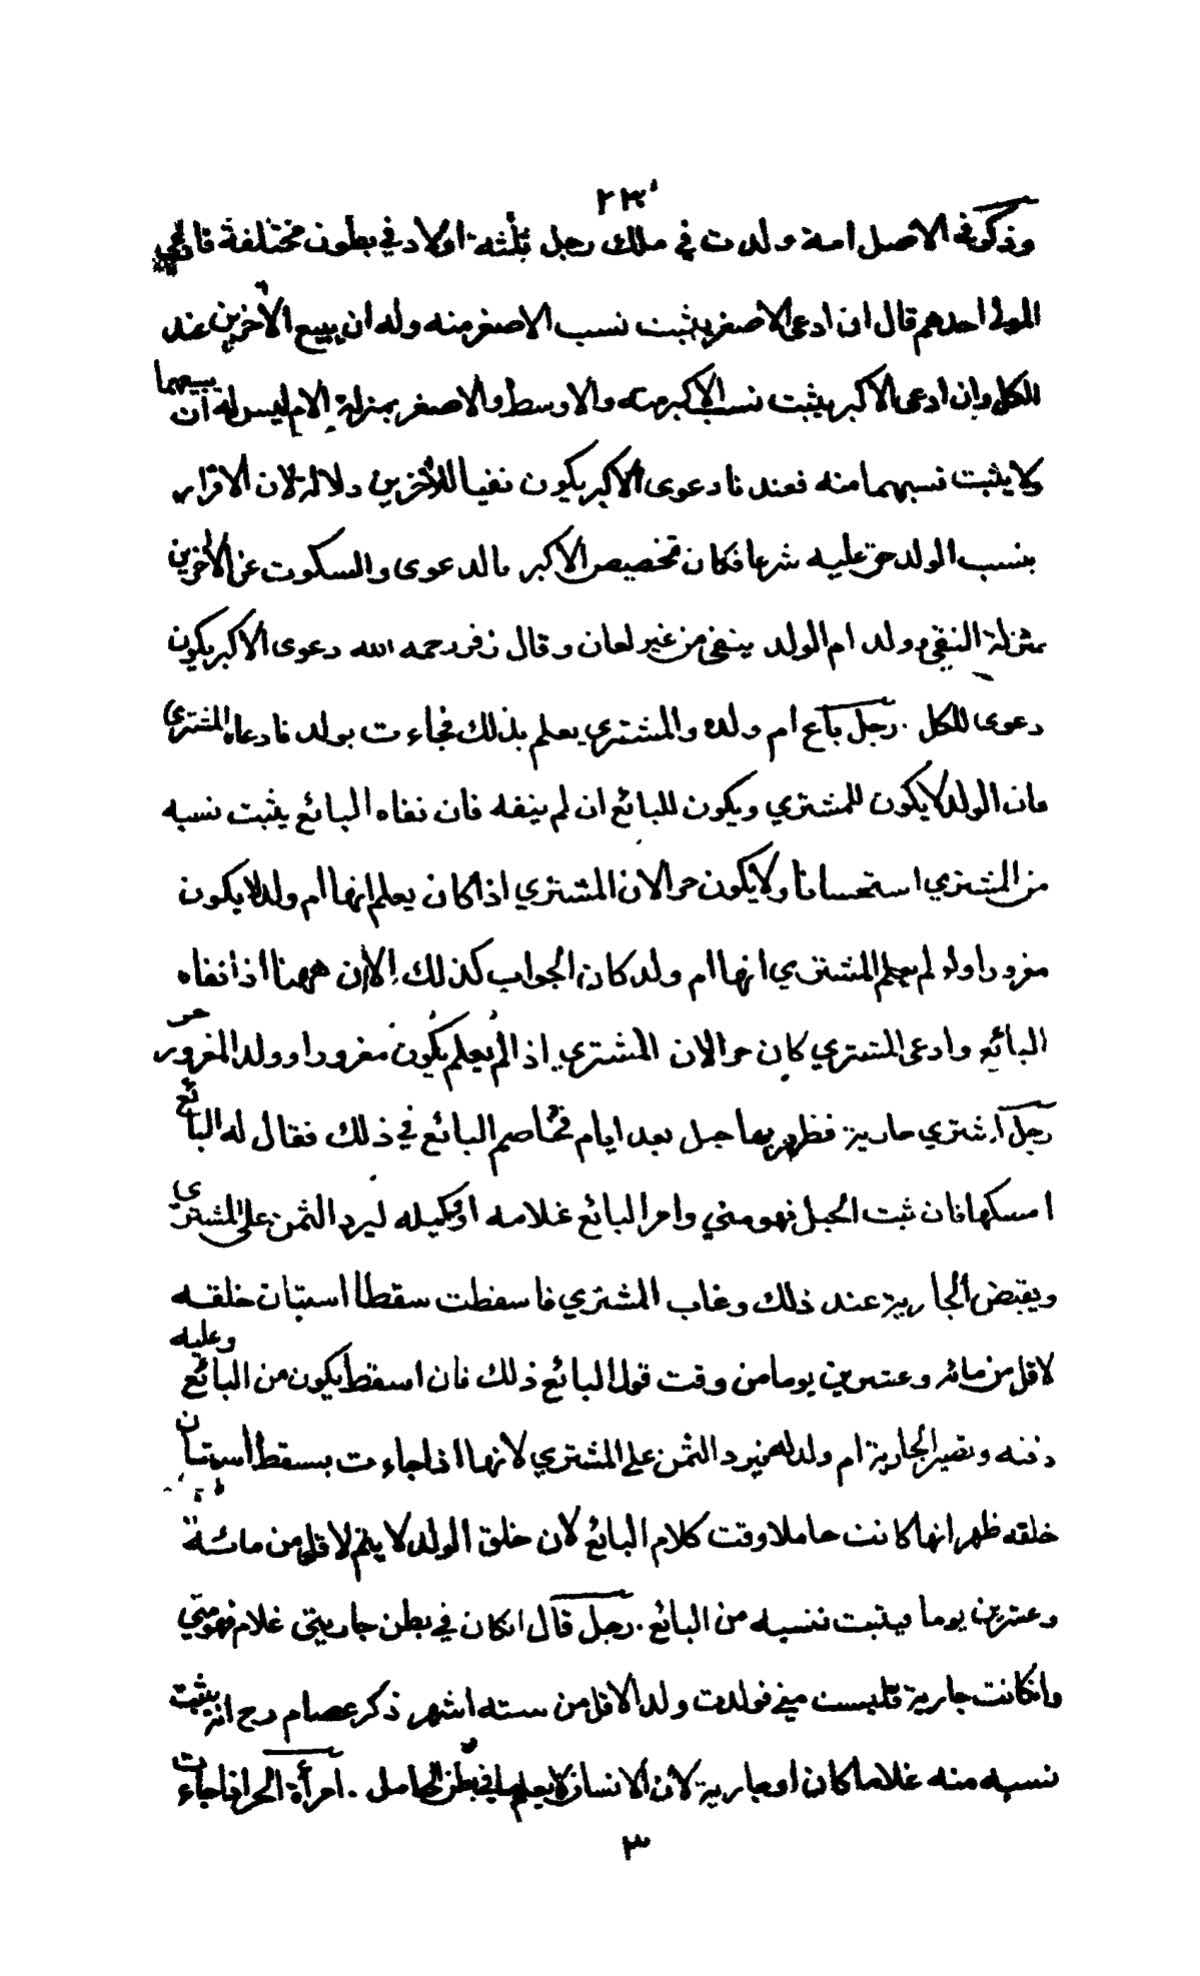 ٢٣
وذكر في الاصل امة ولدت في ملك رجل ثلثة اولاد في بطون مختلفة فادعى
المولى احدهم قال ان ادعى الاصغر يثبت نسب الاصغر منه وله ان يبيع الاخرين عند
الكل وان ادعى الاكبر يثبت نسب الاكبر منه والاوسط والاصغر بمنزلة الام ليس له ان يبيعهما
ولا يثبت نسبهما منه فعندنا دعوى الاكبر يكون نفيا للاخرين دلالة لان الاقرار
بنسب الولد حق عليه شرعا فكان تخصيص الاكبر بالدعوى والسكوت عن الاخرين
بمنزلة النفي وولد ام الولد ينفى من غير لعان وقال زفر رحمه الله دعوى الاكبر يكون
دعوى للكل . رجل باع ام ولده والمشتري يعلم بذلك فجاءت بولد فادعاه المشتري
فان الولد لا يكون للمشتري ويكون للبائع ان لم ينفه فان نفاه البائع يثبت نسبه
من المشتري استحسانا ولا يكون حرا لان المشتري اذا كان يعلم انها ام ولد لا يكون
مغرورا ولو لم يعلم المشتري انها ام ولد كان الجواب كذلك الا ان ههنا اذا نفاه
البائع وادعى المشتري كان حرا لان المشتري اذا لم يعلم يكون مغرورا وولد المغرور حر
رجل اشترى جارية فظهر بها حبل بعد ايام فخاصم البائع في ذلك فقال له البائع
امسكها فان ثبت الحبل فهو مني وامر البائع غلامه او وكيله ليرد الثمن على المشتري
ويقبض الجارية عند ذلك وغاب المشتري فاسقطت سقطا استبان خلقه
لاقل من مائة وعشرين يوما من وقت قول البائع ذلك فان اسقط يكون من البائع وعليه
دفنه وتصير الجارية ام ولد له فيرد الثمن على المشتري لانها اذا جاءت بسقط استبان
خلقه ظهر انها كانت حاملا وقت كلام البائع لان خلق الولد لا يتم لاقل من مائة
وعشرين يوما فيثبت نسبه من البائع . رجل قال ان كان في بطن جاريتي غلام فهو مني
وانكانت جارية فليست مني فولدت ولدا لاقل من ستة اشهر ذكر عصام رح انه يثبت
نسبه منه غلاما كان او جارية لان الانسان لا يعلم ما في بطن الحامل . امرأة الحر اذا جاءت
٣